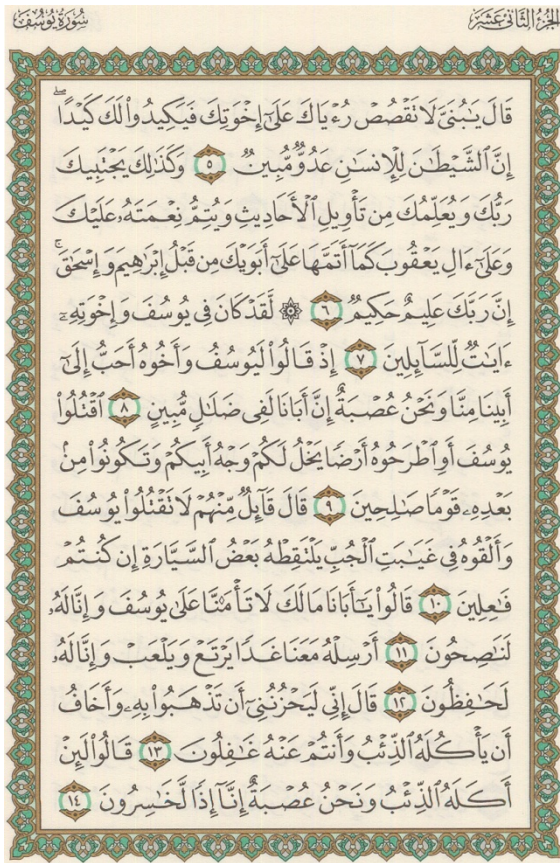 الجزء الثاني عشر
سورة يوسف
قَالَ يَٰبُنَىَّ لَا تَقْصُصْ رُءْيَاكَ عَلَىٰٓ إِخْوَتِكَ فَيَكِيدُوا۟ لَكَ كَيْدًا ۖ
إِنَّ ٱلشَّيْطَٰنَ لِلْإِنسَٰنِ عَدُوٌّ مُّبِينٌ ٥ وَكَذَٰلِكَ يَجْتَبِيكَ
رَبُّكَ وَيُعَلِّمُكَ مِن تَأْوِيلِ ٱلْأَحَادِيثِ وَيُتِمُّ نِعْمَتَهُۥ عَلَيْكَ
وَعَلَىٰٓ ءَالِ يَعْقُوبَ كَمَآ أَتَمَّهَا عَلَىٰٓ أَبَوَيْكَ مِن قَبْلُ إِبْرَٰهِيمَ وَإِسْحَٰقَ ۚ
إِنَّ رَبَّكَ عَلِيمٌ حَكِيمٌ ٦ ۞ لَّقَدْ كَانَ فِى يُوسُفَ وَإِخْوَتِهِۦٓ
ءَايَٰتٌ لِّلسَّآئِلِينَ ٧ إِذْ قَالُوا۟ لَيُوسُفُ وَأَخُوهُ أَحَبُّ إِلَىٰٓ
أَبِينَا مِنَّا وَنَحْنُ عُصْبَةٌ إِنَّ أَبَانَا لَفِى ضَلَٰلٍ مُّبِينٍ ٨ ٱقْتُلُوا۟
يُوسُفَ أَوِ ٱطْرَحُوهُ أَرْضًا يَخْلُ لَكُمْ وَجْهُ أَبِيكُمْ وَتَكُونُوا۟ مِنۢ
بَعْدِهِۦ قَوْمًا صَٰلِحِينَ ٩ قَالَ قَآئِلٌ مِّنْهُمْ لَا تَقْتُلُوا۟ يُوسُفَ
وَأَلْقُوهُ فِى غَيَٰبَتِ ٱلْجُبِّ يَلْتَقِطْهُ بَعْضُ ٱلسَّيَّارَةِ إِن كُنتُمْ
فَٰعِلِينَ ١٠ قَالُوا۟ يَٰٓأَبَانَا مَا لَكَ لَا تَأْمَ۫نَّا عَلَىٰ يُوسُفَ وَإِنَّا لَهُۥ
لَنَٰصِحُونَ ١١ أَرْسِلْهُ مَعَنَا غَدًا يَرْتَعْ وَيَلْعَبْ وَإِنَّا لَهُۥ
لَحَٰفِظُونَ ١٢ قَالَ إِنِّى لَيَحْزُنُنِىٓ أَن تَذْهَبُوا۟ بِهِۦ وَأَخَافُ
أَن يَأْكُلَهُ ٱلذِّئْبُ وَأَنتُمْ عَنْهُ غَٰفِلُونَ ١٣ قَالُوا۟ لَئِنْ
أَكَلَهُ ٱلذِّئْبُ وَنَحْنُ عُصْبَةٌ إِنَّآ إِذًا لَّخَٰسِرُونَ ١٤